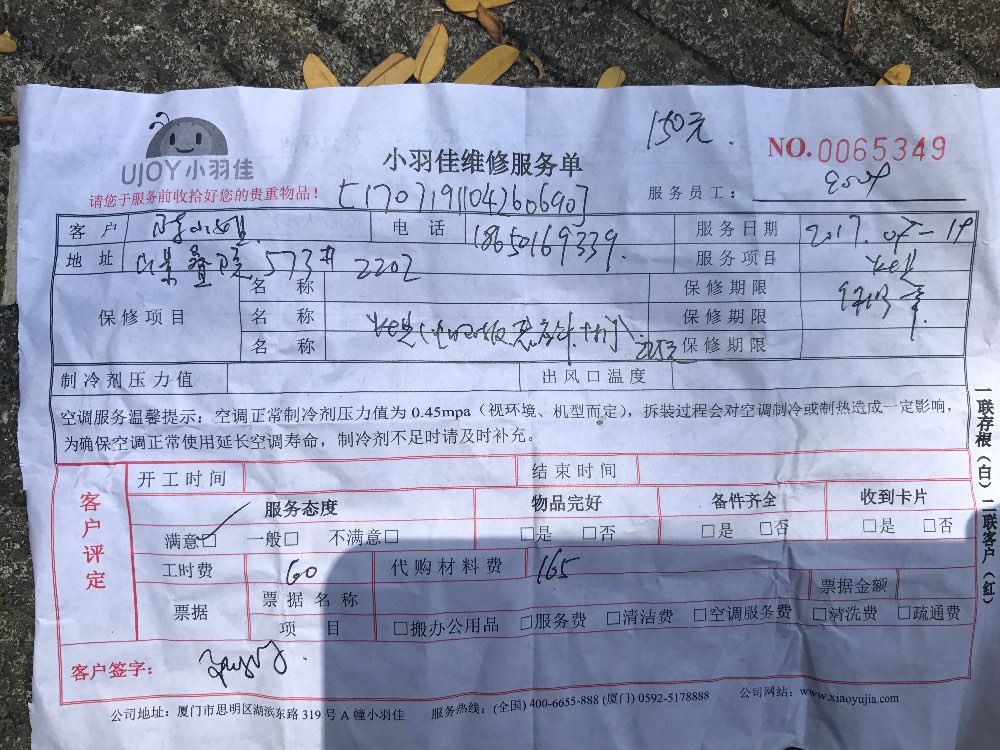 150元.
UJOY小羽佳
小羽佳维修服务单
NO.0065349
请您于服务前收拾好您的贵重物品！
[1707191104260690]
服务员工：
客户
电话 18650169339.
服务日期 2017.07-19
地址 573# 2202
服务项目
保修项目
名称
保修期限
名称
保修期限
名称
225元
保修期限
制冷剂压力值
出风口温度
空调服务温馨提示：空调正常制冷剂压力值为 0.45mpa（视环境、机型而定），拆装过程会对空调制冷或制热造成一定影响，
为确保空调正常使用延长空调寿命，制冷剂不足时请及时补充。
客户评定
开工时间
结束时间
服务态度 物品完好 备件齐全 收到卡片
满意☑ 一般□ 不满意□ □是 □否 □是 □否 □是 □否
工时费 60 代购材料费 165
票据
票据名称
票据金额
项目 □搬办公用品 □服务费 □清洁费 □空调服务费 □清洗费 □疏通费
客户签字：
公司地址：厦门市思明区湖滨东路 319 号 A 幢小羽佳 服务热线：(全国) 400-6655-888 (厦门) 0592-5178888 公司网站：www.xiaoyujia.com
一联存根（白）二联客户（红）